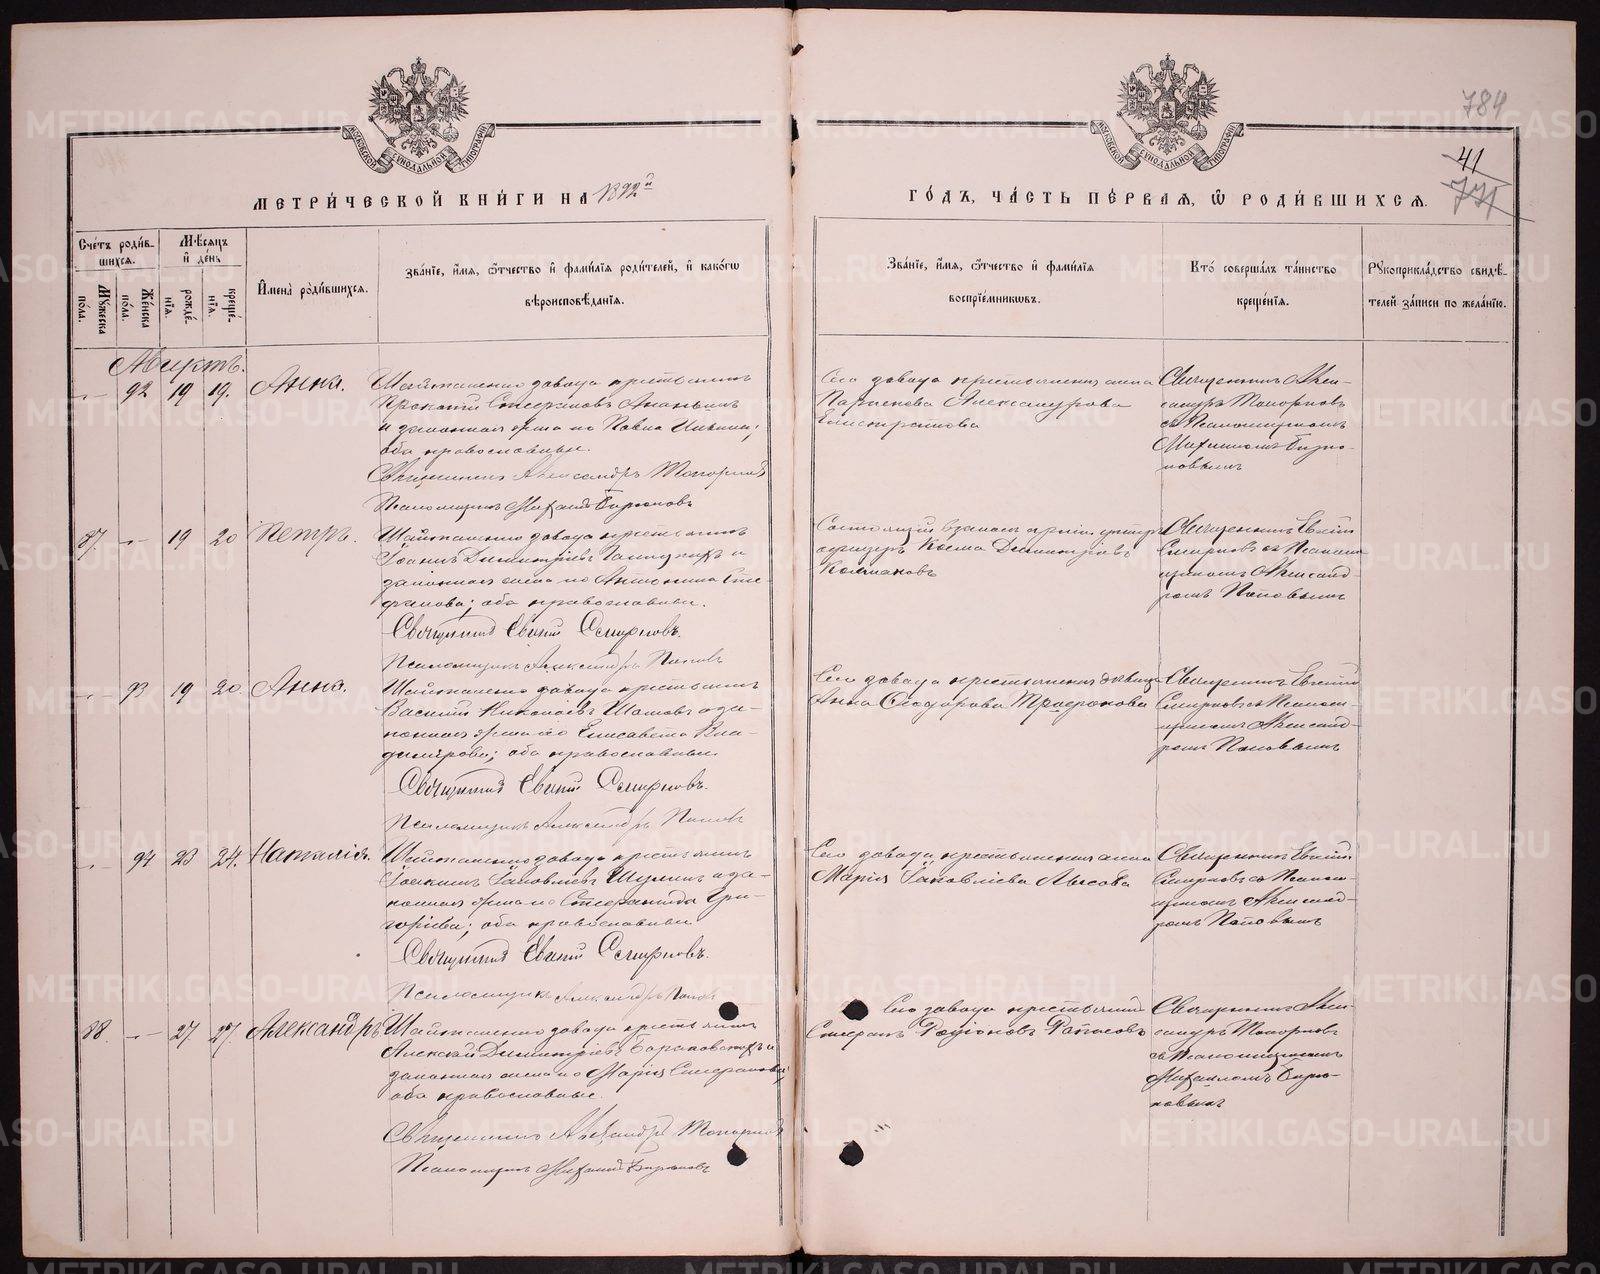 784
41
771
МОСКОВСКОЙ СѴНОДАЛЬНОЙ ТИПОГРАФІИ
МОСКОВСКОЙ СѴНОДАЛЬНОЙ ТИПОГРАФІИ
МЕТРИ́ЧЕСКОЙ КНИ́ГИ НА 1892й
ГО́ДЪ, ЧА́СТЬ ПЕ́РВАѦ, Ѡ РОДИ́ВШИХСѦ.
Сче́тъ роди́в-
шихсѧ.
Мꙋ́жеска по́ла.
Же́нска по́ла.
Мѣ́сѧцъ
и҆ де́нь
рожде́-
нїѧ.
креще́-
нїѧ.
И҆мена̀ роди́вшихсѧ.
Зва́нїе, и҆́мѧ, ѻ҆́тчество и҆ фами́лїѧ роди́телей, и҆ како́гѡ
вѣроисповѣ́данїѧ.
Зва́нїе, и҆́мѧ, ѻ҆́тчество и҆ фами́лїѧ
воспрїе́мникѡвъ.
Кто̀ соверша́лъ та́инство
креще́нїѧ.
Рꙋкоприкла́дство свидѣ́-
телей за́писи по жела́нїю.
Августъ.
92 19 19. Анна.
Шайтанскаго завода крестьянинъ
Стефановъ Ананьинъ
и законная жена его
оба православные.
Священникъ Александръ Топорковъ
Псаломщикъ Михаилъ Бирюковъ
Сего завода крестьянская жена
Александрова
Елистратова
Священникъ Алек-
сандръ Топорковъ
съ Псаломщикомъ
Михаиломъ Бирю-
ковымъ
87. 19 20 Петръ.
Шайтанскаго завода крестьянинъ
Іоаннъ Димитріевъ и
законная жена его Антонина Сте-
фанова; оба православные.
Священникъ Евгеній Смирновъ.
Псаломщикъ Александръ Поповъ
Состоящій въ запасѣ арміи унтеръ
офицеръ Косма Димитріевъ
Колмаковъ
Священникъ Евгеній
Смирновъ съ Псалом-
щикомъ Александ-
ромъ Поповымъ
93 19 20. Анна.
Шайтанскаго завода крестьянинъ
Василій Николаевъ и за-
конная жена его Елисавета Вла-
димірова; оба православные
Священникъ Евгеній Смирновъ.
Псаломщикъ Александръ Поповъ
Сего завода крестьянская дѣвица
Анна Ѳеодорова Трофимова
Священникъ Евгеній
Смирновъ съ Псалом-
щикомъ Александ-
ромъ Поповымъ
94 23 24. Наталія.
Шайтанскаго завода крестьянинъ
Іоакимъ Іаковлевъ Шулинъ и за-
конная жена его Стефанида Гри-
горьева; оба православные
Священникъ Евгеній Смирновъ.
Псаломщикъ Александръ Поповъ
Сего завода крестьянская жена
Марія Іаковлева Лысова
Священникъ Евгеній
Смирновъ съ Псалом-
щикомъ Александ-
ромъ Поповымъ
88. 27 27. Александръ
Шайтанскаго завода крестьянинъ
Алексѣй Димитріевъ и
законная жена его Марія Стефанова;
оба православные.
Священникъ Александръ Топорковъ
Псаломщикъ Михаилъ Бирюковъ
Сего завода крестьянинъ
Стефанъ Родіоновъ
Священникъ Алек-
сандръ Топорковъ
съ Псаломщикомъ
Михаиломъ Бирю-
ковымъ
METRIKI.GASO-URAL.RU